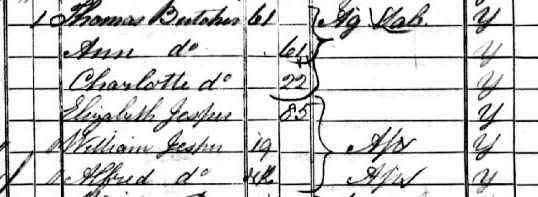 1 Thomas Butcher 61 Ag Lab Y
Ann do 61 Y
Charlotte do 22 Y
Elizabeth Jesper 85 Y
William Jesper 19 Y
Alfred do Y